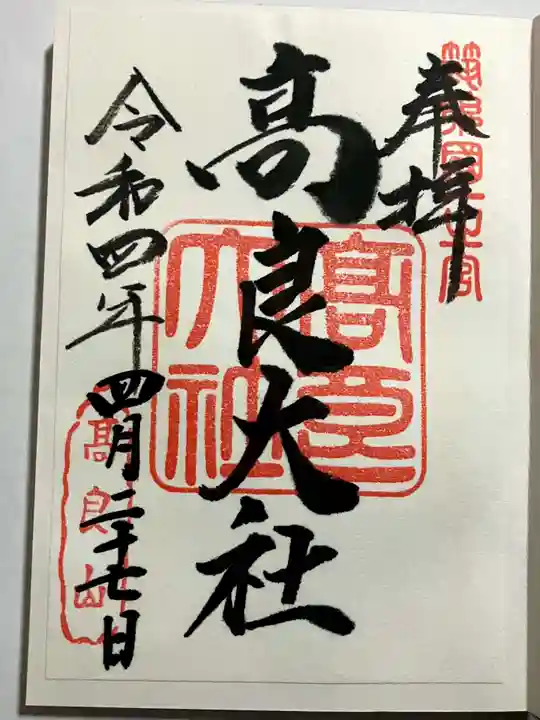 奉拝
筑後國一の宮
髙良大社
髙良大社
令和四年四月二十七日
髙良山